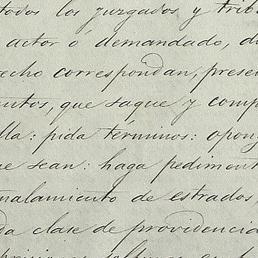 todos los juzgados y trib
actor ó demandado, d
echo correspondan, presen
utos, que saque y comp
lla: pida términos: opong
ue sean: haga pediment
nalamiento de estrados,
da clase de providencia